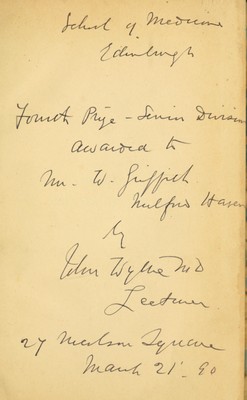 School of Medicine
Edinburgh
Fourth Prize - Senior Division
awarded to
Mr. W. Griffith
Milford Haven
by
John Wyllie M D
Lecturer
27 Nicolson Square
March 21st 90